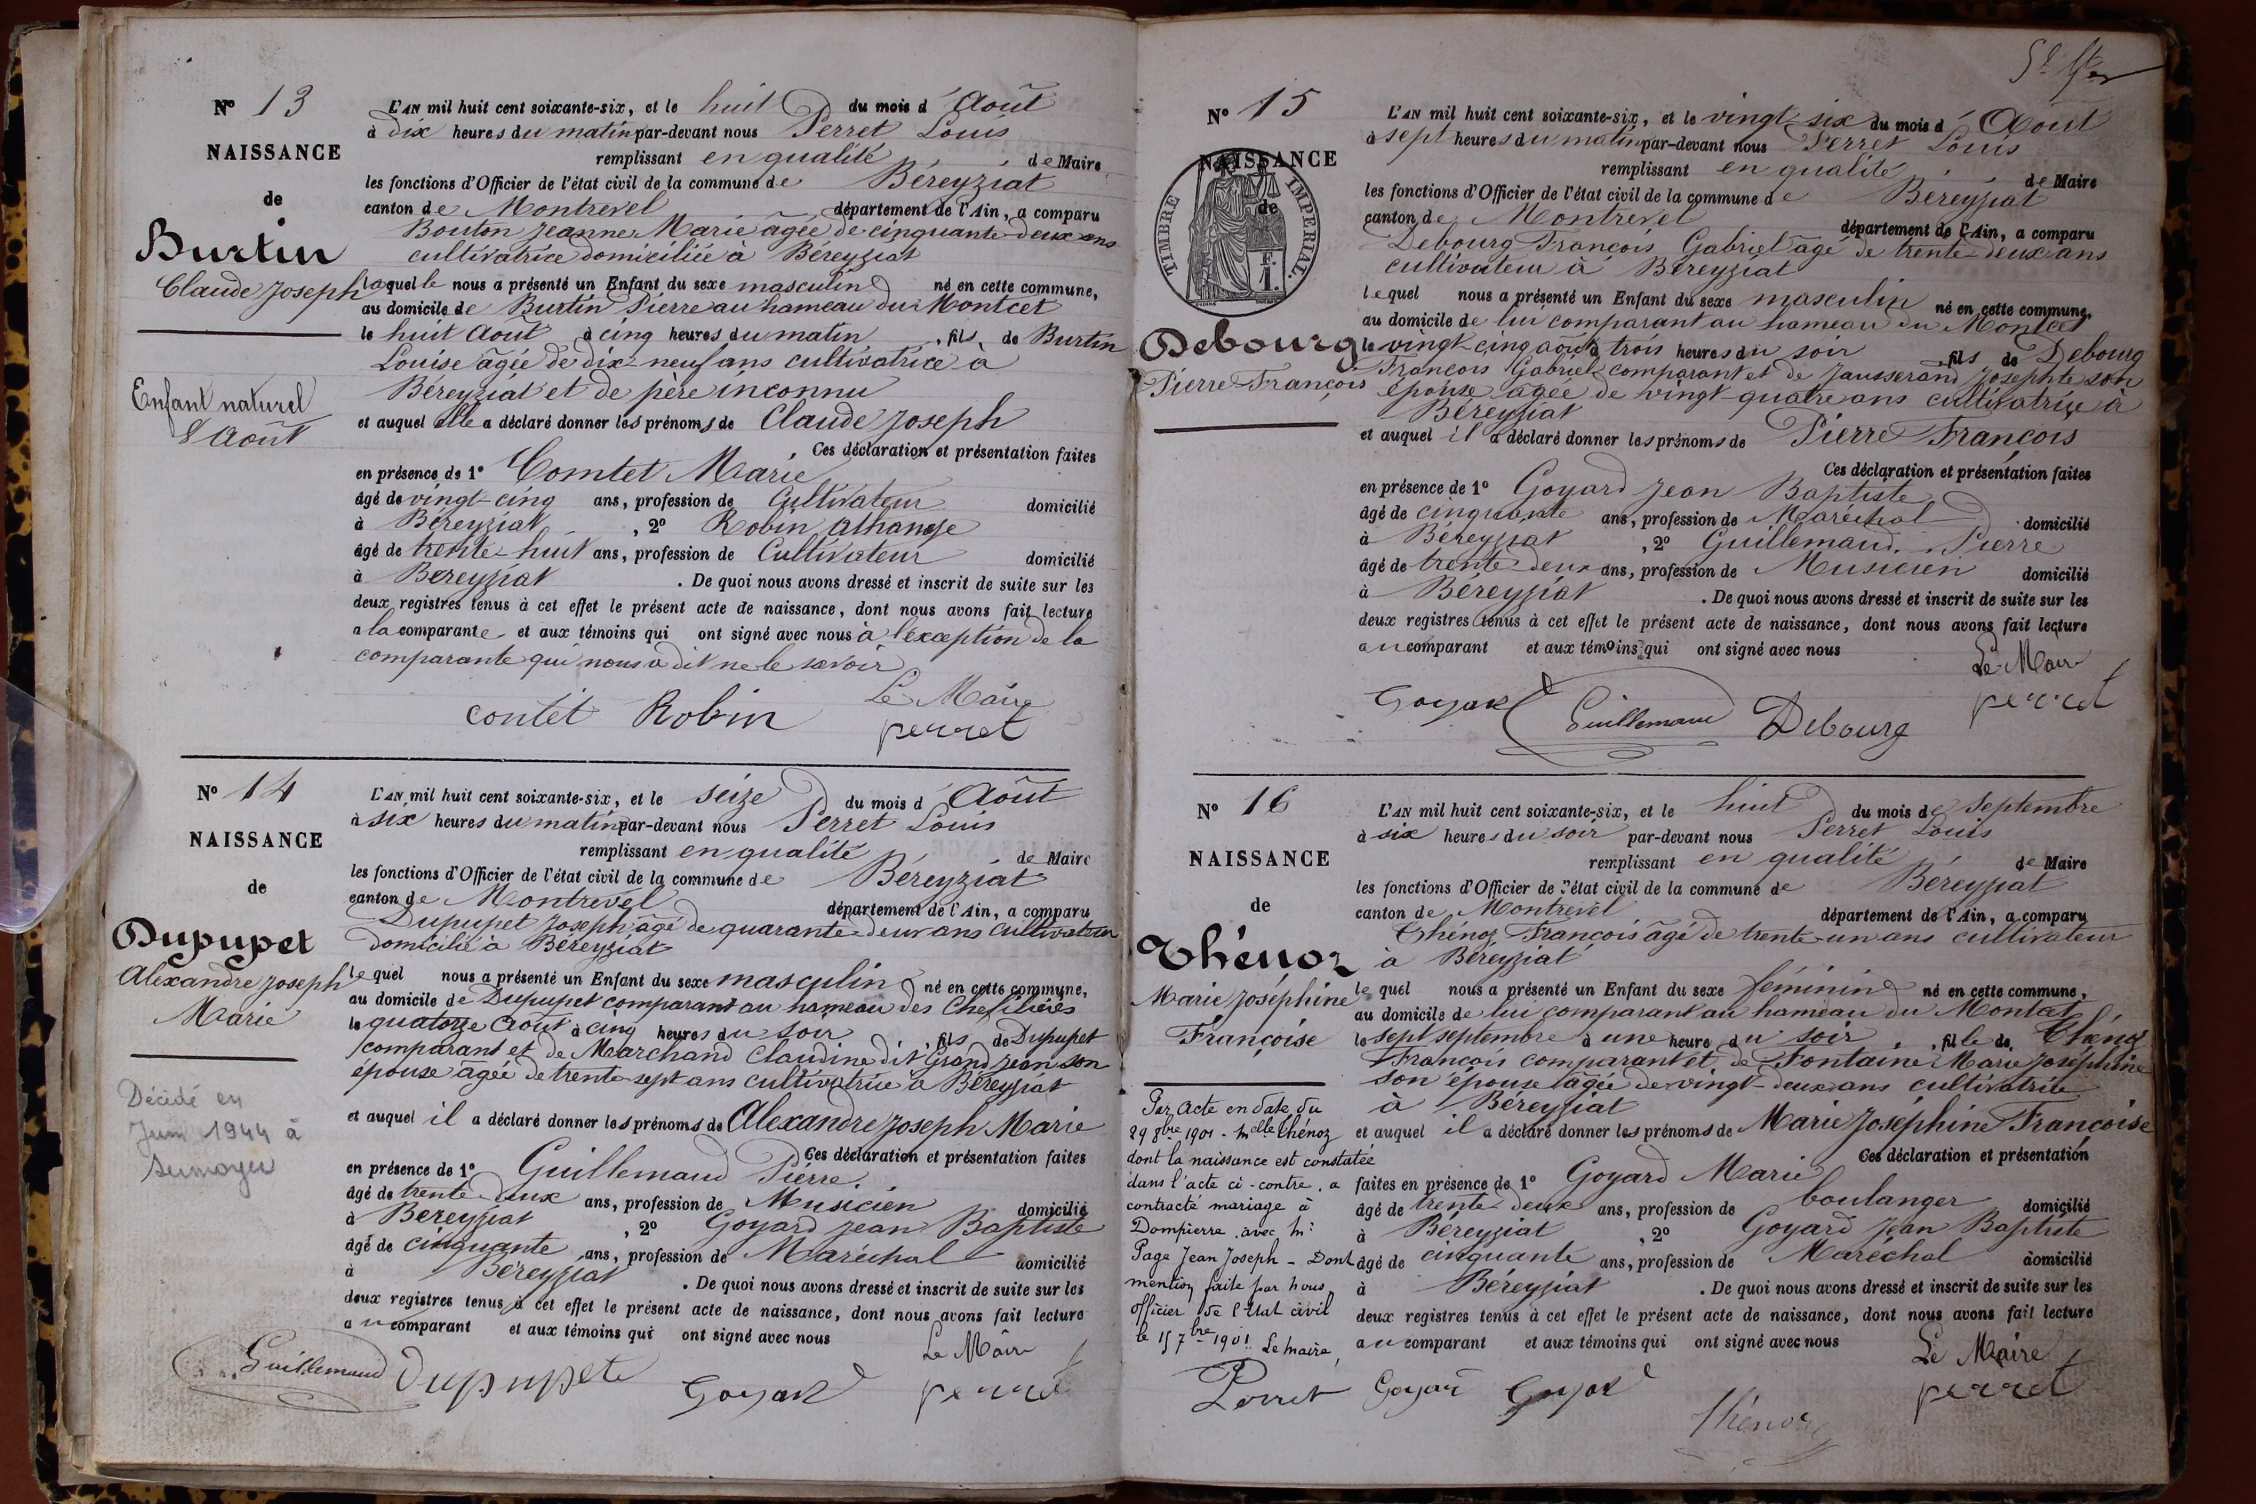 N° 13
NAISSANCE
de
Burtin
Claude Joseph
Enfant naturel
8 Août
L'AN mil huit cent soixante-six, et le huit du mois d'Août
à dix heures du matin par-devant nous Perret Louis
remplissant en qualité de Maire
les fonctions d'Officier de l'état civil de la commune de Béreyziat
canton de Montrevel département de l'Ain, a comparu
Bouton Jeanne Marie âgée de cinquante-deux ans
cultivatrice domiciliée à Béreyziat
laquelle nous a présenté un Enfant du sexe masculin né en cette commune,
au domicile de Burtin Pierre au hameau du Montcet
le huit Août à cinq heures du matin, fils de Burtin
Louise âgée de dix-neuf ans cultivatrice à
Béreyziat et de père inconnu
et auquel elle a déclaré donner les prénoms de Claude Joseph
Ces déclaration et présentation faites
en présence de 1° Comtet Marie
âgé de vingt-cinq ans, profession de Cultivateur domicilié
à Béreyziat, 2° Robin Athanase
âgé de trente-huit ans, profession de Cultivateur domicilié
à Béreyziat. De quoi nous avons dressé et inscrit de suite sur les
deux registres tenus à cet effet le présent acte de naissance, dont nous avons fait lecture
a la comparante et aux témoins qui ont signé avec nous à l'exception de la
comparante qui nous a dit ne le savoir
Le Maire
contet Robin perret
N° 14
NAISSANCE
de
Dupupet
Alexandre Joseph
Marie
Décédé en
Juin 1944 à
L'AN mil huit cent soixante-six, et le seize du mois d'Août
à six heures du matin par-devant nous Perret Louis
remplissant en qualité de Maire
les fonctions d'Officier de l'état civil de la commune de Béreyziat
canton de Montrevel département de l'Ain, a comparu
Dupupet Joseph âgé de quarante-deux ans cultivateur
domicilié à Béreyziat
lequel nous a présenté un Enfant du sexe masculin né en cette commune,
au domicile de Dupupet comparant au hameau des
le quatorze Août à cinq heures du soir, fils de Dupupet
comparant et de Marchand Claudine dit Grand Jean son
épouse âgée de trente-sept ans cultivatrice à Béreyziat
et auquel il a déclaré donner les prénoms de Alexandre Joseph Marie
Ces déclaration et présentation faites
en présence de 1° Guillemaud Pierre
âgé de trente-deux ans, profession de Musicien domicilié
à Béreyziat, 2° Goyard Jean Baptiste
âgé de cinquante ans, profession de Maréchal domicilié
à Béreyziat. De quoi nous avons dressé et inscrit de suite sur les
deux registres tenus à cet effet le présent acte de naissance, dont nous avons fait lecture
au comparant et aux témoins qui ont signé avec nous
Le Maire
Guillemaud Dupupet Goyard perret
N° 15
NAISSANCE
de
TIMBRE IMPERIAL.
F.
1.
Debourg
Pierre François
L'AN mil huit cent soixante-six, et le vingt-six du mois d'Août
à sept heures du matin par-devant nous Perret Louis
remplissant en qualité de Maire
les fonctions d'Officier de l'état civil de la commune de Béreyziat
canton de Montrevel département de l'Ain, a comparu
Debourg François Gabriel âgé de trente-deux ans
cultivateur à Béreyziat
lequel nous a présenté un Enfant du sexe masculin né en cette commune,
au domicile de lui comparant au hameau du Montcet
le vingt-cinq août à trois heures du soir, fils de Debourg
François Gabriel comparant et de Jausserand Josephte son
épouse âgée de vingt-quatre ans cultivatrice à
Béreyziat
et auquel il a déclaré donner les prénoms de Pierre François
Ces déclaration et présentation faites
en présence de 1° Goyard Jean Baptiste
âgé de cinquante ans, profession de Maréchal domicilié
à Béreyziat, 2° Guillemaud Pierre
âgé de trente-deux ans, profession de Musicien domicilié
à Béreyziat. De quoi nous avons dressé et inscrit de suite sur les
deux registres tenus à cet effet le présent acte de naissance, dont nous avons fait lecture
au comparant et aux témoins qui ont signé avec nous
Le Maire
Goyard Guillemaud Debourg perret
N° 16
NAISSANCE
de
Thénoz
Marie Joséphine
Françoise
Par acte en date du
29 8bre 1901 - Melle Thénoz
dont la naissance est constatée
dans l'acte ci-contre, a
contracté mariage à
Dompierre avec Mr
Page Jean Joseph - Dont
mention faite par nous
officier de l'état civil
le 15 7bre 1901 Le maire,
Perret
L'AN mil huit cent soixante-six, et le huit du mois de Septembre
à six heures du soir par-devant nous Perret Louis
remplissant en qualité de Maire
les fonctions d'Officier de l'état civil de la commune de Béreyziat
canton de Montrevel département de l'Ain, a comparu
Thénoz François âgé de trente-un ans cultivateur
à Béreyziat
lequel nous a présenté un Enfant du sexe féminin né en cette commune,
au domicile de lui comparant au hameau du Montat
le sept septembre à une heure du soir, fille de Thénoz
François comparant et de Fontaine Marie Joséphine
son épouse âgée de vingt-deux ans cultivatrice
à Béreyziat
et auquel il a déclaré donner les prénoms de Marie Joséphine Françoise
Ces déclaration et présentation
faites en présence de 1° Goyard Marie
âgé de trente-deux ans, profession de boulanger domicilié
à Béreyziat, 2° Goyard Jean Baptiste
âgé de cinquante ans, profession de Maréchal domicilié
à Béreyziat. De quoi nous avons dressé et inscrit de suite sur les
deux registres tenus à cet effet le présent acte de naissance, dont nous avons fait lecture
au comparant et aux témoins qui ont signé avec nous
Le Maire
Goyard Goyard Thénoz perret